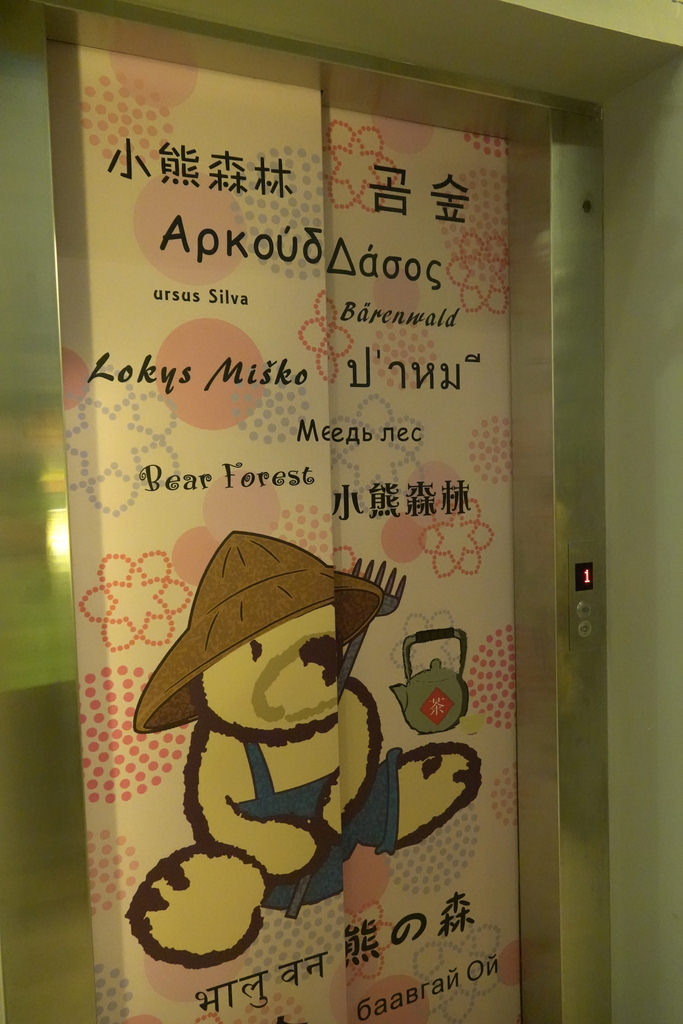 小熊森林
곰 숲
ΑρκούδΔάσος
ursus Silva
Bärenwald
Lokys Miško
ป่าหมี
Медь лес
Bear Forest
小熊森林
1
茶
熊の森
भालु वन
баавгай Ой